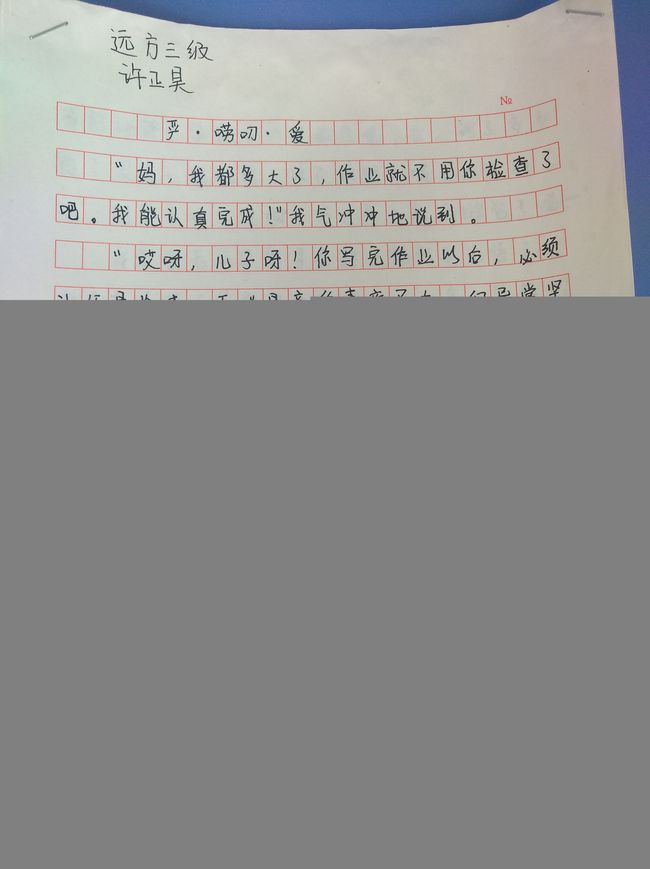 远方三级
许正昊
№
严·唠叨·爱
“妈，我都多大了，作业就不用你检查了
吧。我能认真完成！”我气冲冲地说到。
“哎呀，儿子呀！你写完作业以后，必须